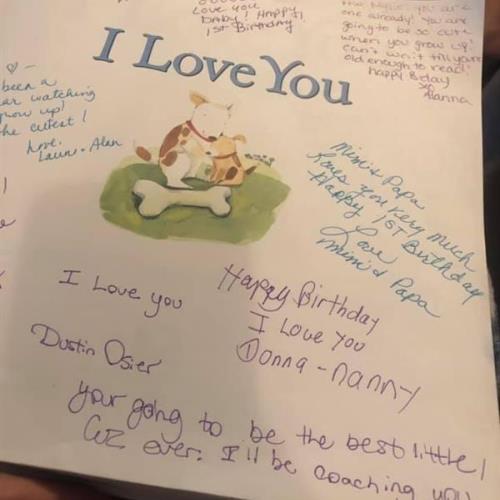 Love you
BABY! Happy
1ST Birthday
one already! You are
going to be so cute
when you grow up!
can't wait till your
old enough to read!
Happy Bday
xo
Alanna
I Love You
been a
watching
grow up!
the cutest!
Love,
Laura + Alan
Mimi & Papa
Loves you very much
Happy 1ST Birthday
Love
Mimi & Papa
I Love you
Dustin Osier
Happy Birthday
I Love You
Donna - nanny
your going to be the best little
ever. I'll be coaching you